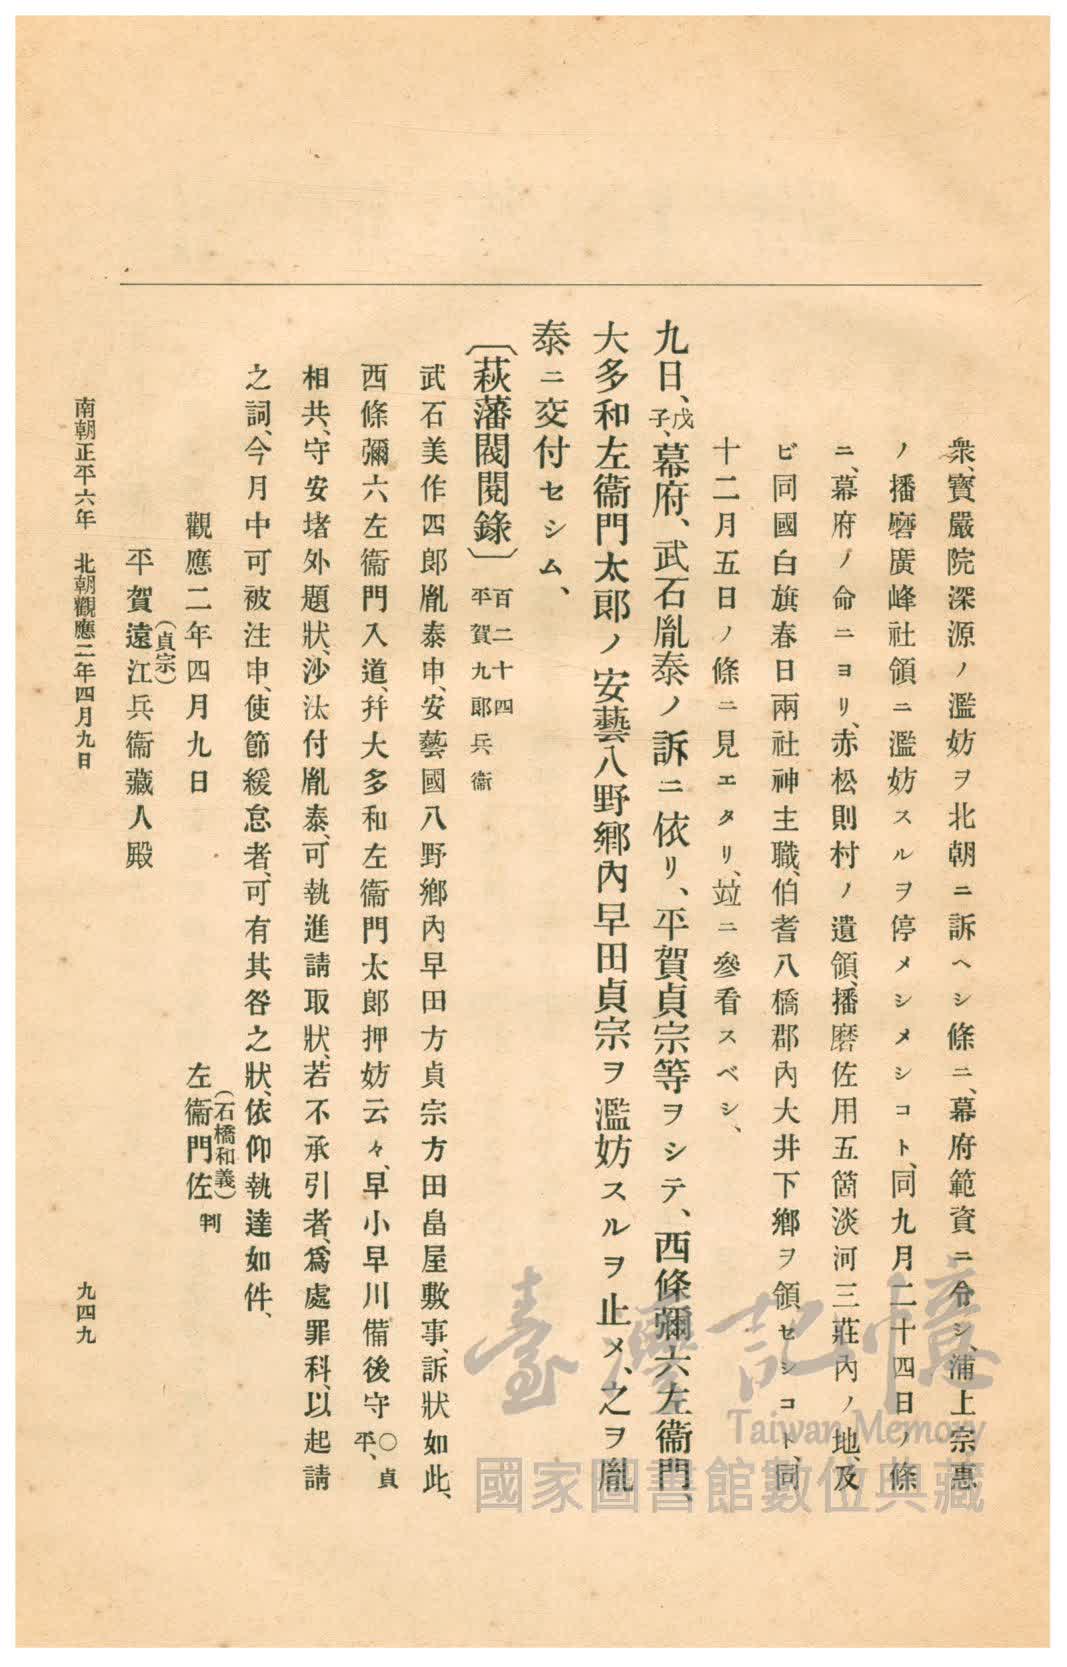 衆、寶嚴院深源ノ濫妨ヲ北朝ニ訴ヘシ條ニ、幕府範資ニ令シ、浦上宗惠
ノ播磨廣峰社領ニ濫妨スルヲ停メシメシコト、同九月二十四日ノ條
ニ、幕府ノ命ニヨリ、赤松則村ノ遺領、播磨佐用五箇淡河三莊內ノ地、及
ビ同國白旗春日兩社神主職、伯耆八橋郡內大井下鄕ヲ領セシコト、同
十二月五日ノ條ニ見エタリ、竝ニ參看スベシ、
九日、戊子、幕府、武石胤泰ノ訴ニ依リ、平賀貞宗等ヲシテ、西條彌六左衞門、
大多和左衞門太郎ノ安藝八野鄕內早田貞宗ヲ濫妨スルヲ止メ、之ヲ胤
泰ニ交付セシム、
〔萩藩閥閱錄〕百二十四
平賀九郎兵衞
武石美作四郎胤泰申、安藝國八野鄕內早田方貞宗方田畠屋敷事、訴狀如此、
西條彌六左衞門入道、幷大多和左衞門太郎押妨云々、早小早川備後守〇貞平、
相共、守安堵外題狀、沙汰付胤泰、可執進請取狀、若不承引者、爲處罪科、以起請
之詞、今月中可被注申、使節緩怠者、可有其咎之狀、依仰執達如件、
觀應二年四月九日
左衞門佐(石橋和義)判
平賀遠江兵衞藏人殿(貞宗)
南朝正平六年 北朝觀應二年四月九日
九四九
臺灣記憶
Taiwan Memory
國家圖書館數位典藏